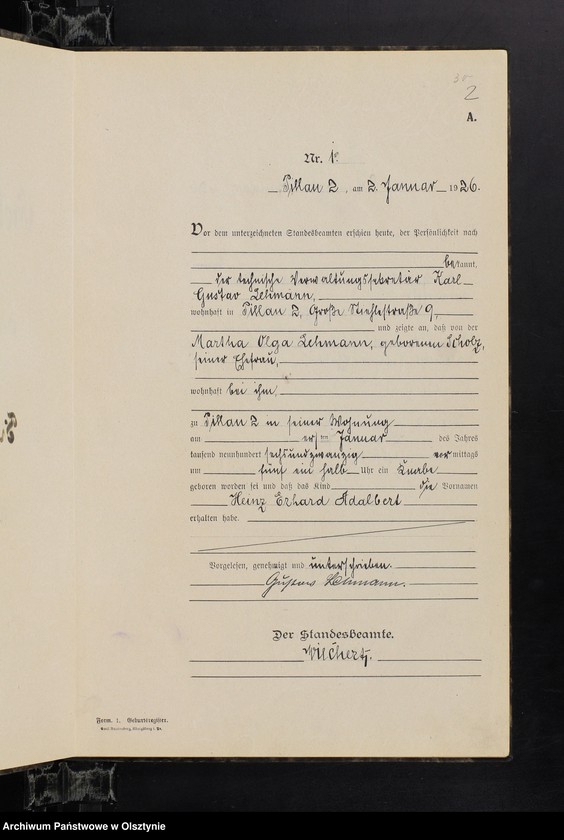 30
2
A.
Nr. 1.
Pillau 2, am 2. Januar 1926.
Vor dem unterzeichneten Standesbeamten erschien heute, der Persönlichkeit nach
bekannt,
der technische Verwaltungssekretär Karl
Gustav Lehmann,
wohnhaft in Pillau 2, Große Stiehlestraße 9,
und zeigte an, daß von der
Martha Olga Lehmann, geborenen Scholz,
seiner Ehefrau,
wohnhaft bei ihm,
zu Pillau 2 in seiner Wohnung
am ersten Januar des Jahres
tausend neunhundert sechsundzwanzig vormittags
um fünf ein halb Uhr ein Knabe
geboren worden sei und daß das Kind die Vornamen
Heinz Erhard Adalbert
erhalten habe.
Vorgelesen, genehmigt und unterschrieben.
Gustav Lehmann.
Der Standesbeamte.
Wilhertz.
Form. 1. Geburtsregister.
Archiwum Państwowe w Olsztynie